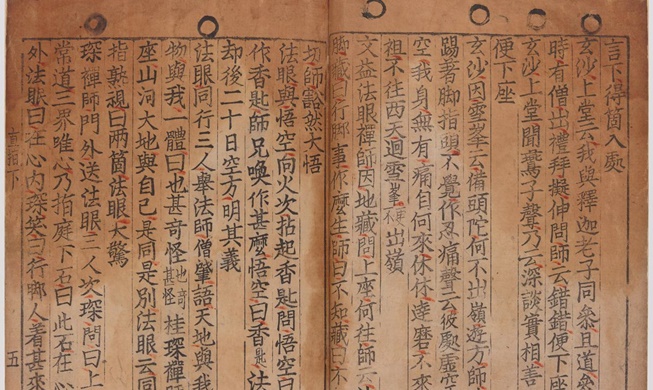 言下得箇入處
玄沙上堂云我與釋迦老子同叅且道叅
時有僧出禮拜擬伸問師云錯錯便下座
玄沙上堂聞鷰子聲乃云深談實相善
便下座
玄沙因雪峯云備頭陀何不出嶺遊方師
踢著脚指頭不覺作忍痛聲云彼處虛空
空我身無有痛自何來休休達磨不來
祖不往西天迴雪峯更不出嶺
文益法眼禪師因地藏問上座何往師云
脚藏曰行脚事作麽生師曰不知藏曰不
切師豁然大悟
法眼與悟空向火次拈起香匙問悟空曰
作香匙師兄喚作甚麽悟空曰香匙法
却後二十日空方明其義
法眼同行三人舉法師僧肇語天地與我
物與我一體曰也甚奇怪也奇甚怪桂琛禪
座山河大地與自己是同是別法眼云同
指熟視曰兩箇法眼大驚
琛禪師門外送法眼三人次琛問曰上
常道三界唯心乃指庭下石曰此石在心
外法眼曰在心內琛笑曰行脚人着甚來
直指下 五